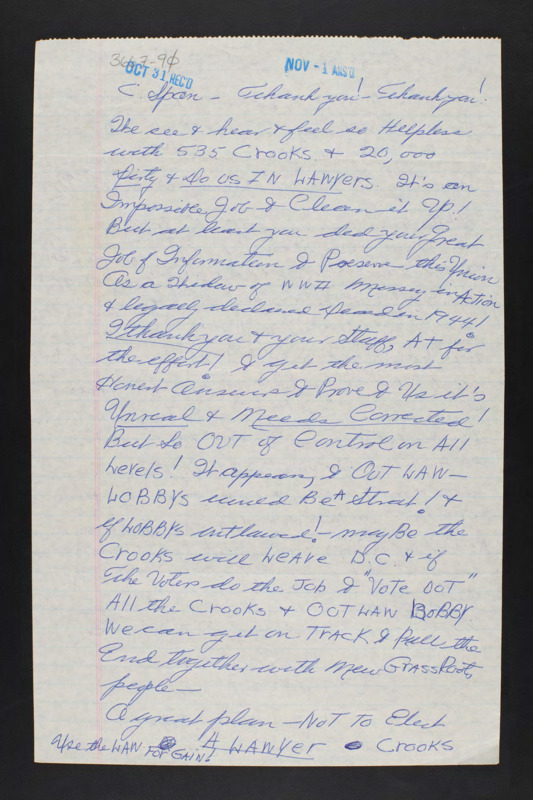 3667-90
OCT 31 REC'D
NOV - 1 ANS'D
C. Span - Thank you! - Thank you!
We see & hear & feel so Helpless
with 535 Crooks & 20,000
Dirty & Do US IN LAWyers. It's an
Impossible Job to Clean it Up!
But at least you did your Great
Job of Information to Preserve this Union
As a Widow of WWII Missing in Action
& legally declared dead in 1944!
I thank you & your Staff, A+ for
the effort! to get the most
Honest Answers to Prove to Us it's
Unreal & Needs Corrected!
But so OUT of Control on All
Levels! It appears to OUTLAW -
LOBBYs would Be A Start! &
if LOBBYs outlawed! - mayBe the
Crooks will LEAVE D.C. & if
The Voters do the Job to "Vote OUT"
All the Crooks & OUTLAW LOBBY
We can get on TRACK & Pull the
End together with New GRASSROOTS
people -
A great plan - NOT TO Elect
A LAWYER Crooks
Use the LAW FOR GAIN!